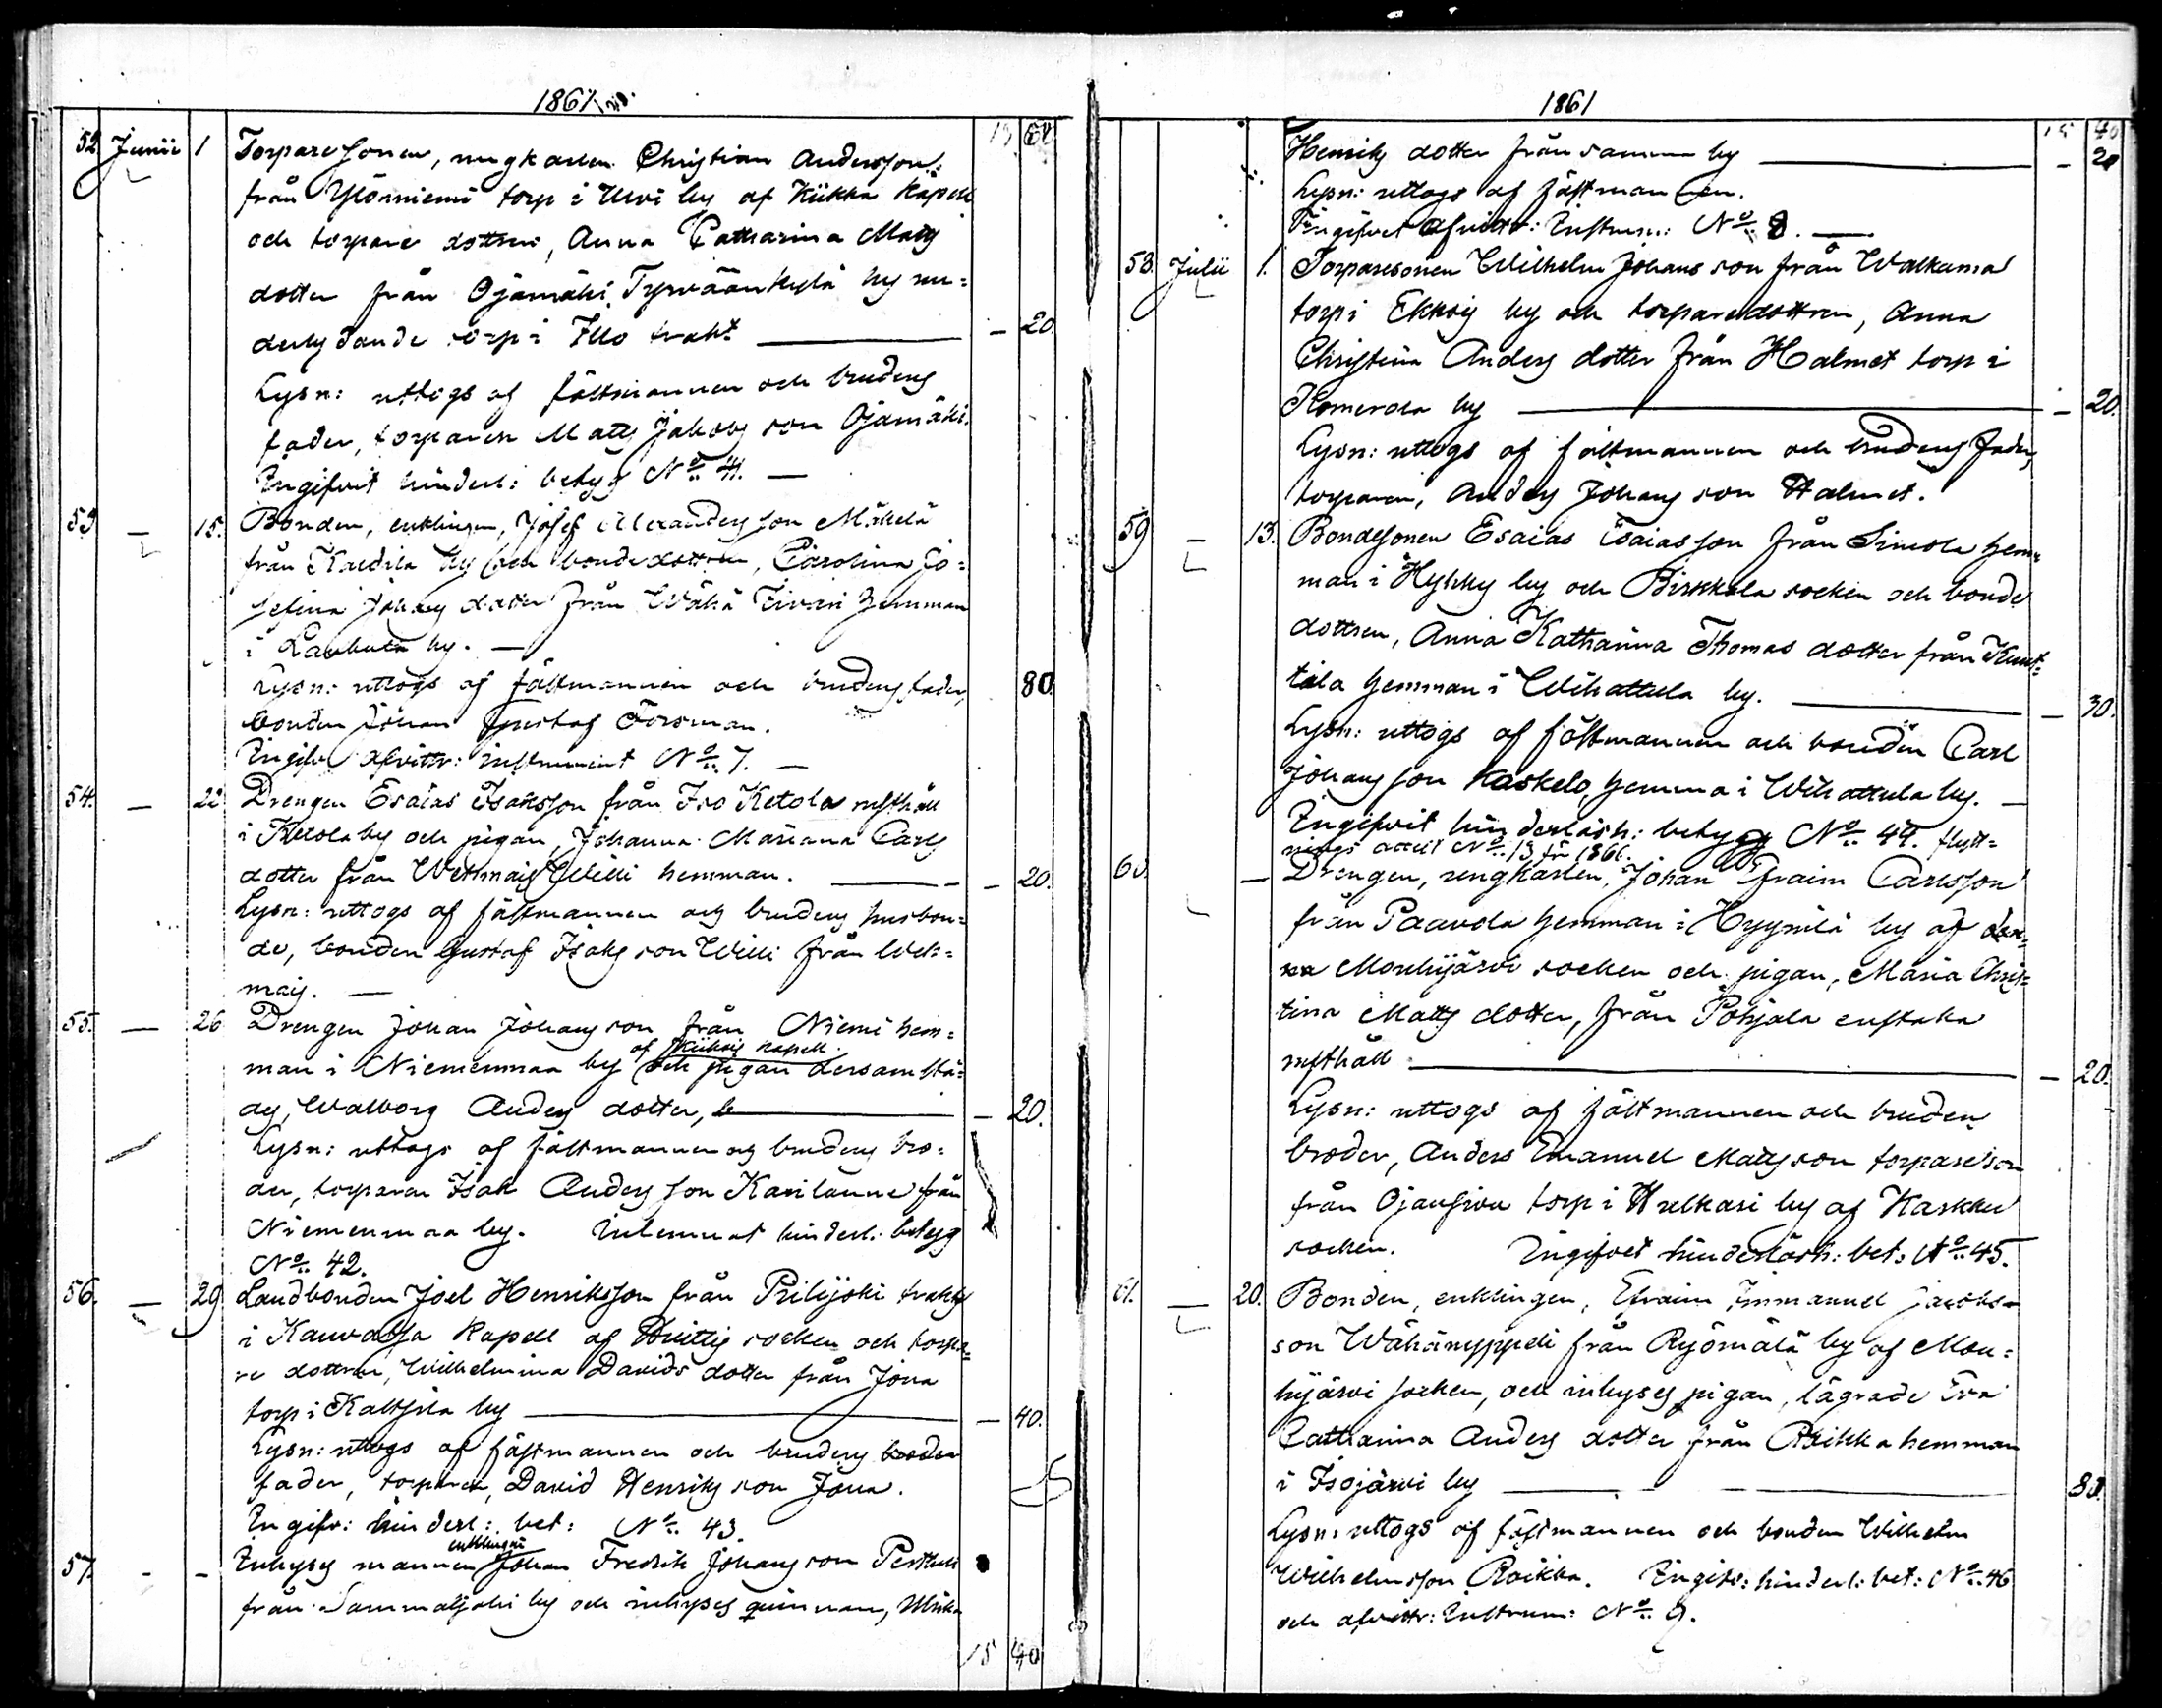 1861
52. Junii 1 Torpare sonen, ungkarlen Christian Andersson 13 60
från Ylönniemi torp i Ulvi by af Kiikka Kapell
och torpare dottren, Anna Catharina Matts
dotter från Ojamäki, Tyrväänkylä by un=
derlydande torp i Illo trakt — 20.
Lysn: uttogs af fästmannen och brudens
fader, torparen Matts Jakobs son Ojamäki.
Ingifvit hinderl: betyg No 41. —
53 — 15. Bonden, enklingen, Josef Alexanders son Mäkelä
från Kaldila by och bondedottren, Carolina Jo=
sefina Johans dotter från Wähä Tivari hemman
i Laukula by. —
Lysn: uttogs af fästmannen och brudens fader, 80.
bonden Johan Gustaf Forsman.
Ingifv. afvittr: instrument No 7. —
54. — 22 Drengen Esaias Isaksson från Iso Ketola rusthåll
i Ketola by och pigan, Johanna Mariana Carls
dotter från Wehmais Willi hemman. — 20.
Lysn: uttogs af fästmannen och brudens husbon=
de, bonden Gustaf Isaks son Willi från Weh=
mais. —
55. — 26 Drengen Johan Johans son från Niemi hem=
af Kiikois kapell.
man i Niemenmaa by och pigan dersamstä=
des, Walborg Anders dotter, — 20.
Lysn: uttogs af fästmannen och brudens bro=
der, torparen Isak Anders son Karilanne från
Niemenmaa by. Inlemnat hinderl. betyg
No 42.
56. — 29 Landbonden Joel Henriksson från Pilijoki trakt
i Kauvatsa Kapell af Huittis socken och torpa=
re dottren, Wilhelmina Davids dotter från Jona
torp i Kaltsila by — 40.
Lysn: uttogs af fästmannen och brudens broder
fader, torparen, David Henriks son Jona.
Ingifv: hinderl: bet: No 43.
enklingen
57. - - Inhyses mannen Johan Fredrik Johans son Perttuli
från Sammaljoki by och inhyses quinnan, Ulrika
15 40
1861
15 40
Henriks dotter från samma by — 20
Lysn: uttogs af fästmannen.
Ingifvet afvittr: Instrum: No 8. —
58. Julii 1. Torparesonen Wilhelm Johans son från Walkama
torp i Ekkois by och torparedottren, Anna
Christina Anders dotter från Halmet torp i
Komerola by — 20.
Lysn: uttogs af fästmannen och brudens fader,
torparen, Anders Johans son Halmet.
59 — 13. Bondesonen Esaias Esaiasson från Simola hem=
man i Hyhky by och Birkkala socken och bonde
dottren, Anna Katharina Thomas dotter från Kunt=
tila hemman i Wihattula by. — 30.
Lysn: uttogs af fästmannen och bonden Carl
Johans son Kaskelo, hemma i Wihattula by. —
Ingifvit hinderlösh: betyg No 44. flytt=
nings attest No 13 för 1861.
60 — Drengen, ungkarlen, Johan Efraim Carlsson
från Paavola hemman i Hyynilä by af den=
na Mouhijärvi socken och pigan, Maria Chris=
tina Matts dotter, från Pohjala enstaka
rusthåll — 20.
Lysn: uttogs af fästmannen och bruden
broder, Anders Emanuel Matts son torpareson
från Ojansivu torp i Kulkari by af Karkku
socken. Ingifvet hinderlösh: bet: No 45.
61. — 20. Bonden, enklingen, Efraim Immanuel Jacobs=
son Wähänyppeli från Ryömälä by af Mou=
hijärvi socken, och inhyses pigan, lägrade Eva
Catharina Anders dotter från Roikka hemman
i Isojärvi by — 80.
Lysn: uttogs af fästmannen och bonden Wilhelm
Wilhelmsson Roikka. Ingifv: hinderl: bet: No 46
och afvittr: Instrum: No 9.